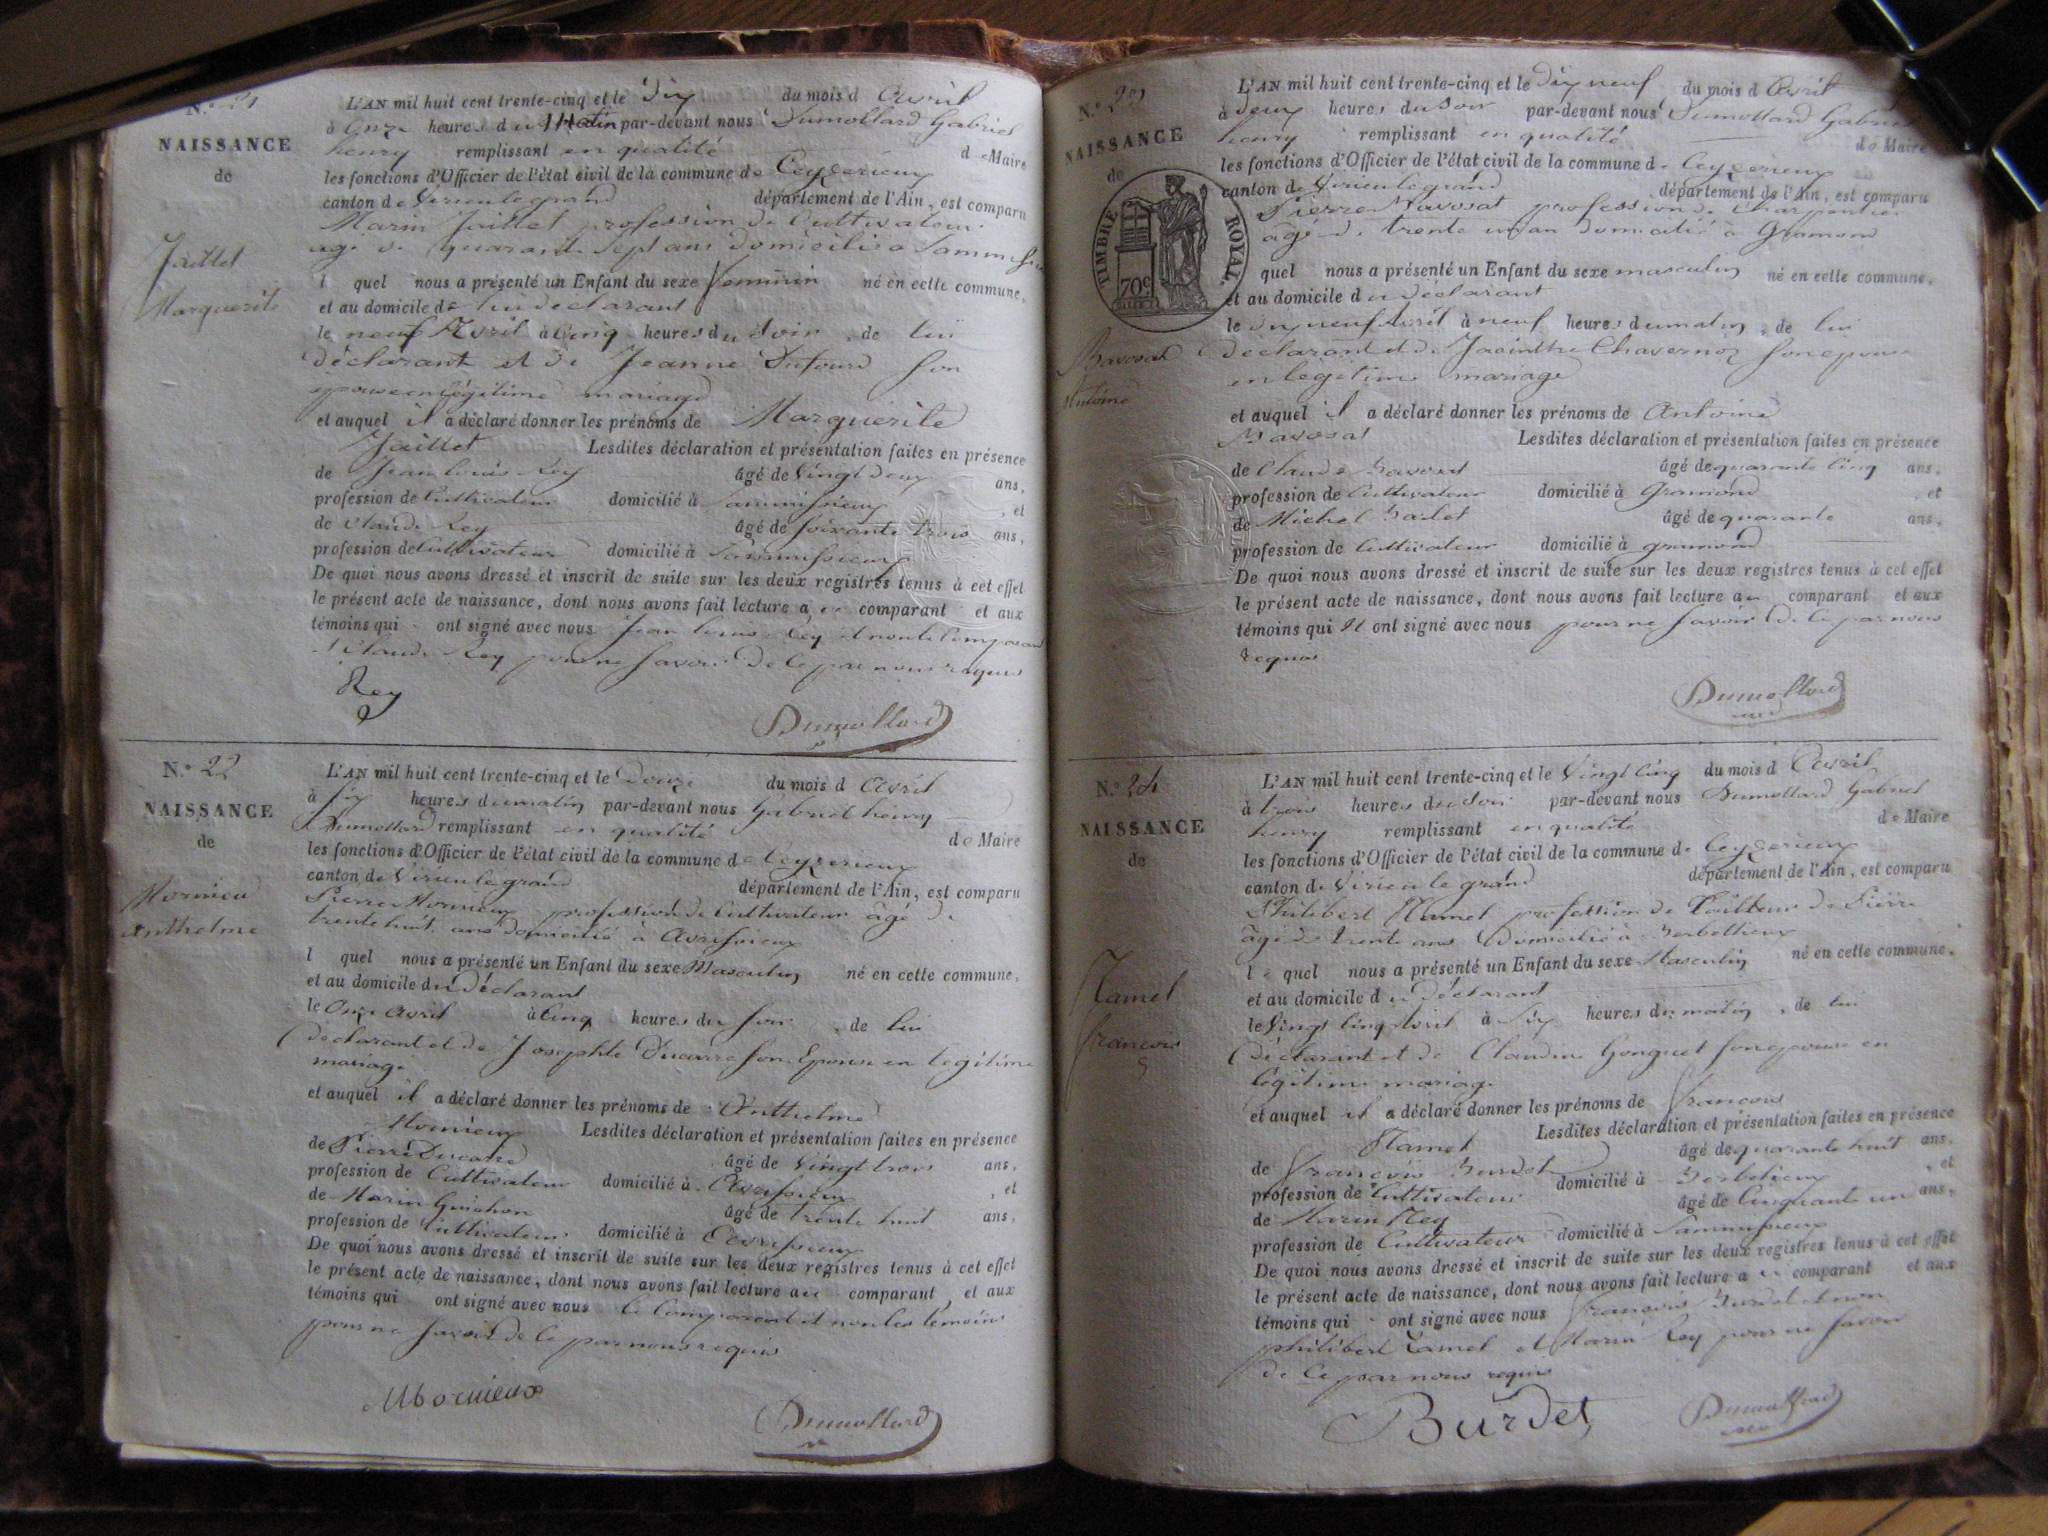 N.o 21
NAISSANCE
de
Jaillet
Marguerite
L'AN mil huit cent trente-cinq et le dix du mois d avril
à onze heures du Matin par-devant nous Dumollard Gabriel
henry remplissant en qualité de Maire
les fonctions d'Officier de l'état civil de la commune de Ceyzerieux
canton de Virieulegrand département de l'Ain, est comparu
Marin Jaillet profession de Cultivateur
agé de quarante Sept ans domicilié a
l quel nous a présenté un Enfant du sexe feminin né en cette commune,
et au domicile de lui déclarant
le neuf Avril à Cinq heures du Soir, de lui
déclarant et de Jeanne Dufour Son
epouse en légitime mariage
et auquel il a déclaré donner les prénoms de Marguerite
Jaillet Lesdites déclaration et présentation faites en présence
de Jean Louis Rey âgé de Vingt Deux ans,
profession de Cultivateur domicilié à , et
de Claude Rey âgé de Soixante trois ans,
profession de Cultivateur domicilié à
De quoi nous avons dressé et inscrit de suite sur les deux registres tenus à cet effet
le présent acte de naissance, dont nous avons fait lecture a comparant et aux
témoins qui ont signé avec nous Jean Louis Rey et non le Comparant
et Claude Rey pour ne Savoir de Ce par nous requis
Rey
Dumollard
N.o 22
NAISSANCE
de
Mornieu
Anthelme
L'AN mil huit cent trente-cinq et le Douze du mois d avril
à Six heures du matin par-devant nous Gabriel henry
Dumollard remplissant en qualité de Maire
les fonctions d'Officier de l'état civil de la commune de Ceyzerieux
canton de Virieulegrand département de l'Ain, est comparu
Pierre Mornieux profession de Cultivateur âgé de
trente huit ans domicilié à Avrissieux
l quel nous a présenté un Enfant du sexe Masculin né en cette commune,
et au domicile du Déclarant
le Onze avril à Cinq heures du Soir, de lui
déclarant et de Josephte Ducarre Son Epouse en légitime
mariage
et auquel il a déclaré donner les prénoms de Anthelme
Mornieux Lesdites déclaration et présentation faites en présence
de Pierre Ducarre âgé de Vingt trois ans,
profession de Cultivateur domicilié à Avrissieux , et
de Marin Guichon âgé de trente huit ans,
profession de Cultivateur domicilié à
De quoi nous avons dressé et inscrit de suite sur les deux registres tenus à cet effet
le présent acte de naissance, dont nous avons fait lecture au comparant, et aux
témoins qui ont signé avec nous le Comparant et non les témoins
pour ne Savoir de Ce par nous requis
Mornieux
Dumollard
N.o 23
NAISSANCE
de
TIMBRE ROYAL.
70c
Bavosat
Antoine
L'AN mil huit cent trente-cinq et le dix neuf du mois d Avril
à deux heures du Soir par-devant nous Dumollard Gabriel
henry remplissant en qualité de Maire
les fonctions d'Officier de l'état civil de la commune de Ceyzerieux
canton de Virieulegrand département de l'Ain, est comparu
Pierre Bavosat profession de Charpentier
agé de trente un an domicilié à Gramond
quel nous a présenté un Enfant du sexe masculin né en cette commune,
et au domicile du déclarant
le dix neuf Avril à neuf heures du matin, de lui
déclarant et de Jacinthe Chavernoz Son epouse
en legitime mariage
et auquel il a déclaré donner les prénoms de Antoine
Bavosat Lesdites déclaration et présentation faites en présence
de Claude Bavosat âgé de quarante Cinq ans,
profession de Cultivateur domicilié à Gramond , et
de Michel âgé de quarante ans,
profession de Cultivateur domicilié à gramond
De quoi nous avons dressé et inscrit de suite sur les deux registres tenus à cet effet
le présent acte de naissance, dont nous avons fait lecture au comparant et aux
témoins qui N ont signé avec nous pour ne Savoir De Ce par nous
requis
Dumollard
N.o 24
NAISSANCE
de
Hamel
francois
L'AN mil huit cent trente-cinq et le Vingt Cinq du mois d Avril
à trois heures du Soir par-devant nous Dumollard Gabriel
henry remplissant en qualité de Maire
les fonctions d'Officier de l'état civil de la commune de Ceyzerieux
canton de Virieu le grand département de l'Ain, est comparu
Philibert Hamel profession de tailleur de Pierre
âgé de trente ans Domicilié à
le quel nous a présenté un Enfant du sexe Masculin né en cette commune,
et au domicile du déclarant
le Vingt Cinq Avril à Six heures du matin, de lui
déclarant et de Claudine Gonguet Son epouse en
légitime mariage
et auquel il a déclaré donner les prénoms de francois
Hamel Lesdites déclaration et présentation faites en présence
de francois Burdet âgé de quarante huit ans,
profession de Cultivateur domicilié à , et
de Marin Rey âgé de Cinquante un ans,
profession de Cultivateur domicilié à
De quoi nous avons dressé et inscrit de suite sur les deux registres tenus à cet effet
le présent acte de naissance, dont nous avons fait lecture a comparant et aux
témoins qui ont signé avec nous francois Burdet et non
philibert Hamel et Marin Rey pour ne Savoir
de Ce par nous requis
Burdet
Dumollard